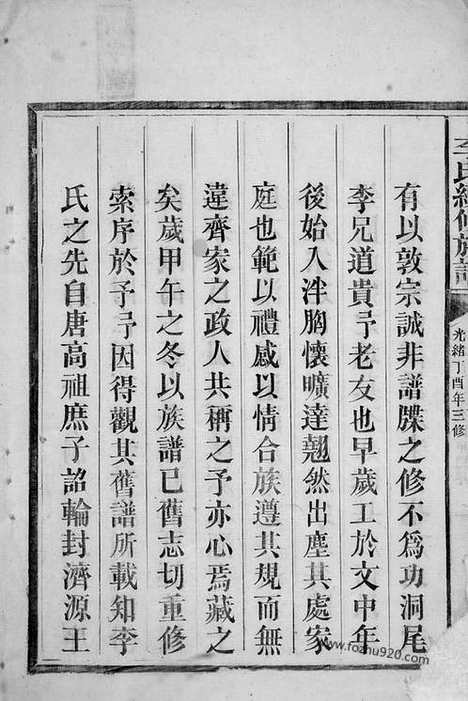 李氏續修族譜
光緒丁酉年三修
有以敦宗誠非譜牒之修不為功洞尾
李兄道貴予老友也早歲工於文中年
後始入泮胸懷曠達翹然出塵其處家
庭也範以禮感以情合族遵其規而無
違齊家之政人共稱之予亦心焉藏之
矣歲甲午之冬以族譜已舊志切重修
索序於予予因得觀其舊譜所載知李
氏之先自唐高祖庶子詔輪封濟源王
www.fozhu920.com